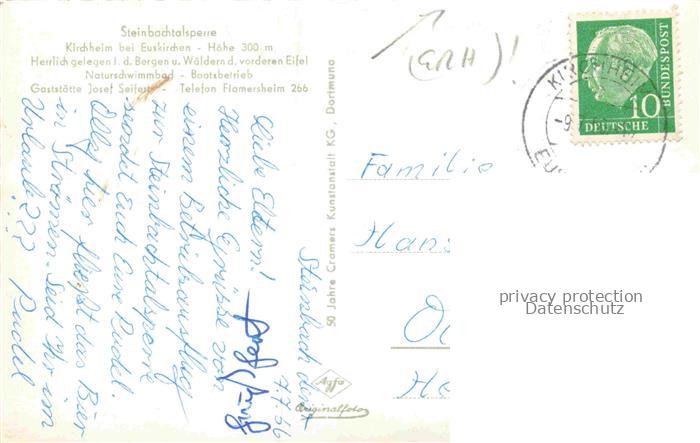 Steinbachtalsperre
Kirchheim bei Euskirchen - Höhe 300 m
Herrlich gelegen i. d. Bergen u. Wäldern d. vorderen Eifel
Naturschwimmbad - Bootsbetrieb
Gaststätte Josef Seifert - Telefon Flamersheim 266
50 Jahre Cramers Kunstanstalt KG., Dortmund
Agfa
Originalfoto
7.7.56
Liebe Eltern!
Herzliche Grüsse von
einem Betriebsausflug
zur Steinbachtalsperre
sendet Euch Eure Rudel.
hier fliesst das Bier
in Strömen. Seid Ihr im
Urlaub???
Rudel
Familie
Hans
10
DEUTSCHE
BUNDESPOST
privacy protection
Datenschutz